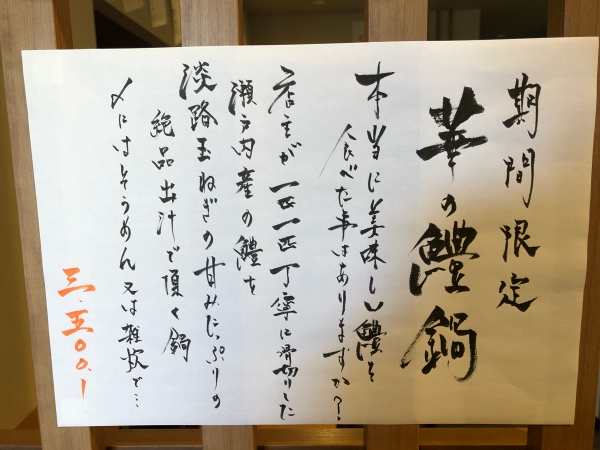 期間限定
華の鱧鍋
本当に美味しい鱧を
食べた事はありますか？
店主が一匹一匹丁寧に骨切りした
瀬戸内産の鱧を
淡路玉ねぎの甘みたっぷりの
絶品出汁で頂く鍋
〆にはそうめん又は雑炊で…
三.五〇〇.ｌ